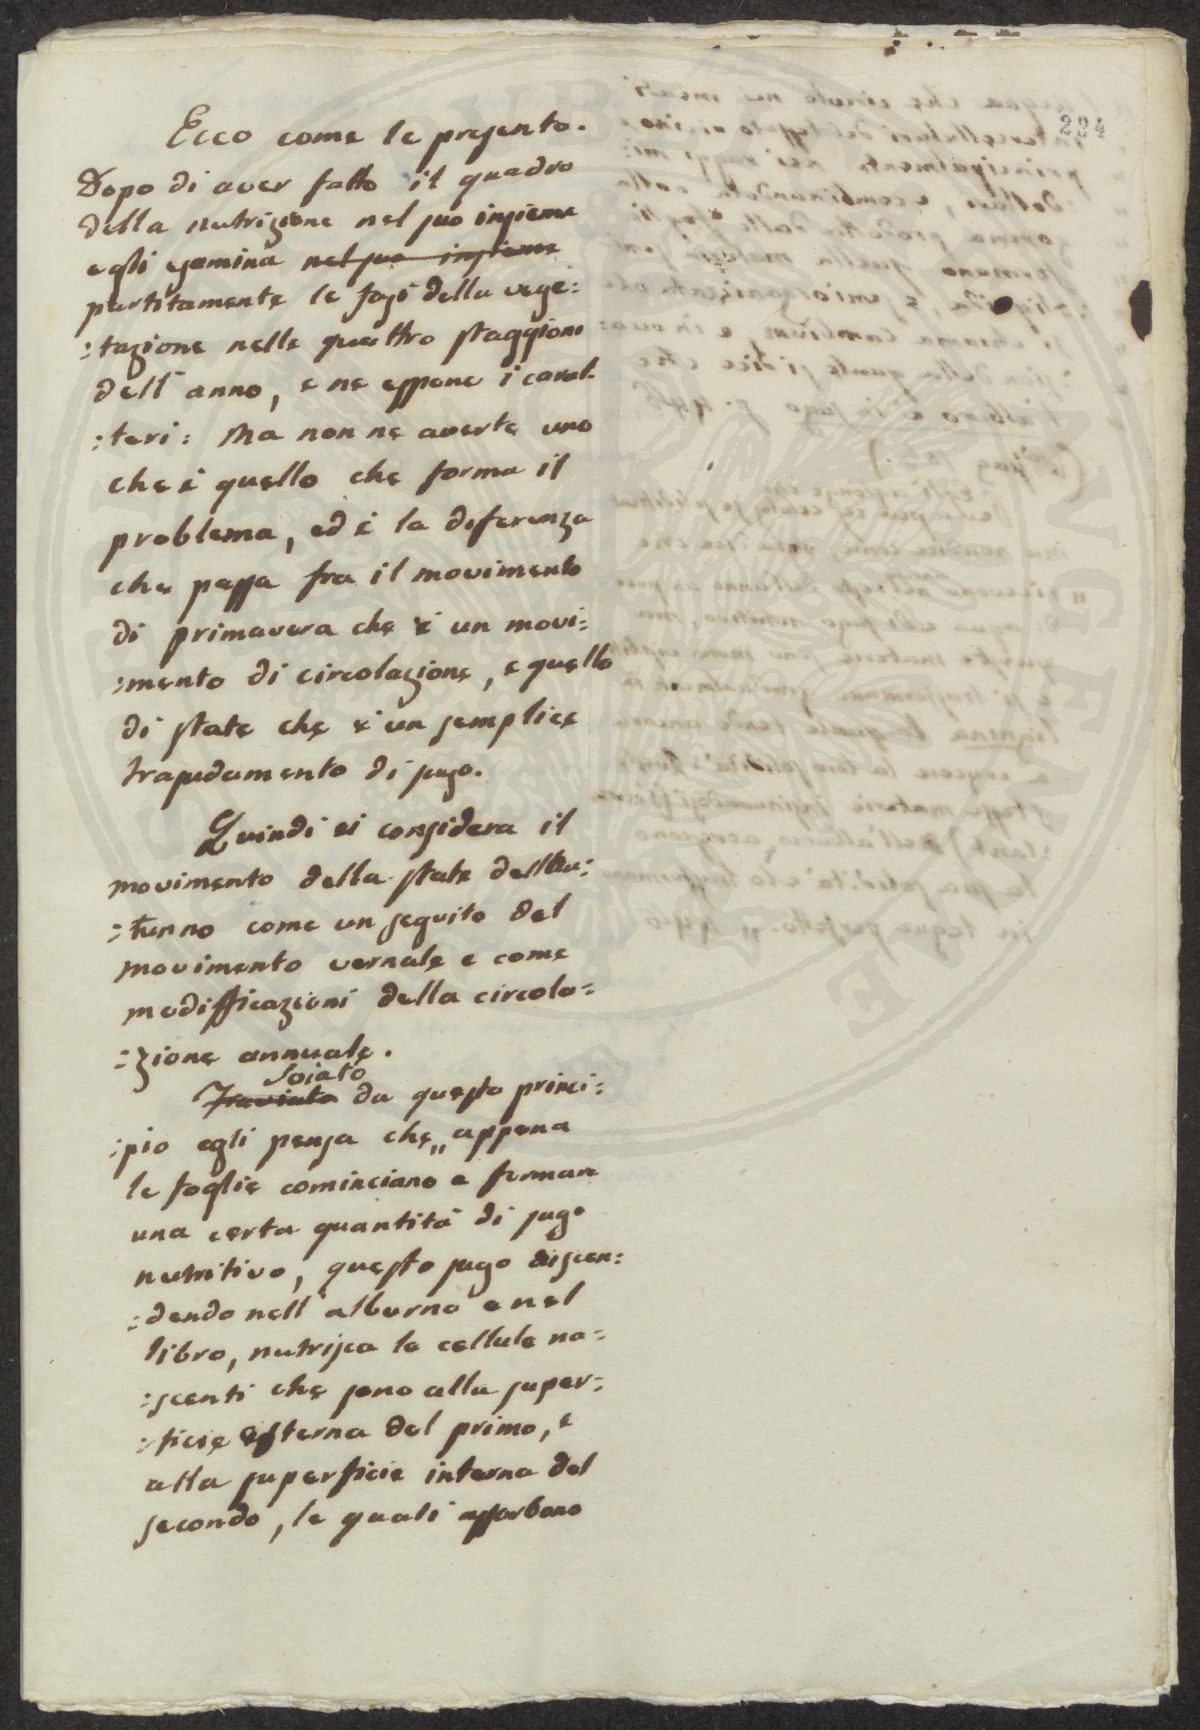 294
Ecco come le presento.
Dopo di aver fatto il quadro
della nutrizione nel suo insieme
egli esamina nel suo insieme
partitamente le fasi della vege:
:tazione nelle quattro staggioni
dell'anno, e ne espone i carat-
:teri: Ma non ne averte uno
che è quello che forma il
problema, ed è la diferenza
che passa fra il movimento
di primavera che è un movi:
:mento di circolazione, e quello
di state che è un semplice
trapudamento di sugo.
Quindi si considera il
movimento della state dell'au:
:tunno come un seguito del
movimento vernale e come
modifficazioni della circola=
:zione annuale.
Soiato
da questo princi:
:pio egli pensa che „ appena
le foglie cominciano a formare
una certa quantità di sugo
nutritivo, questo sugo discen:
:dendo nell'alburno e nel
libro, nutrisca le cellule na=
:scenti che sono alla super=
:ficie esterna del primo, e
alla superficie interna del
secondo, le quali assorbono